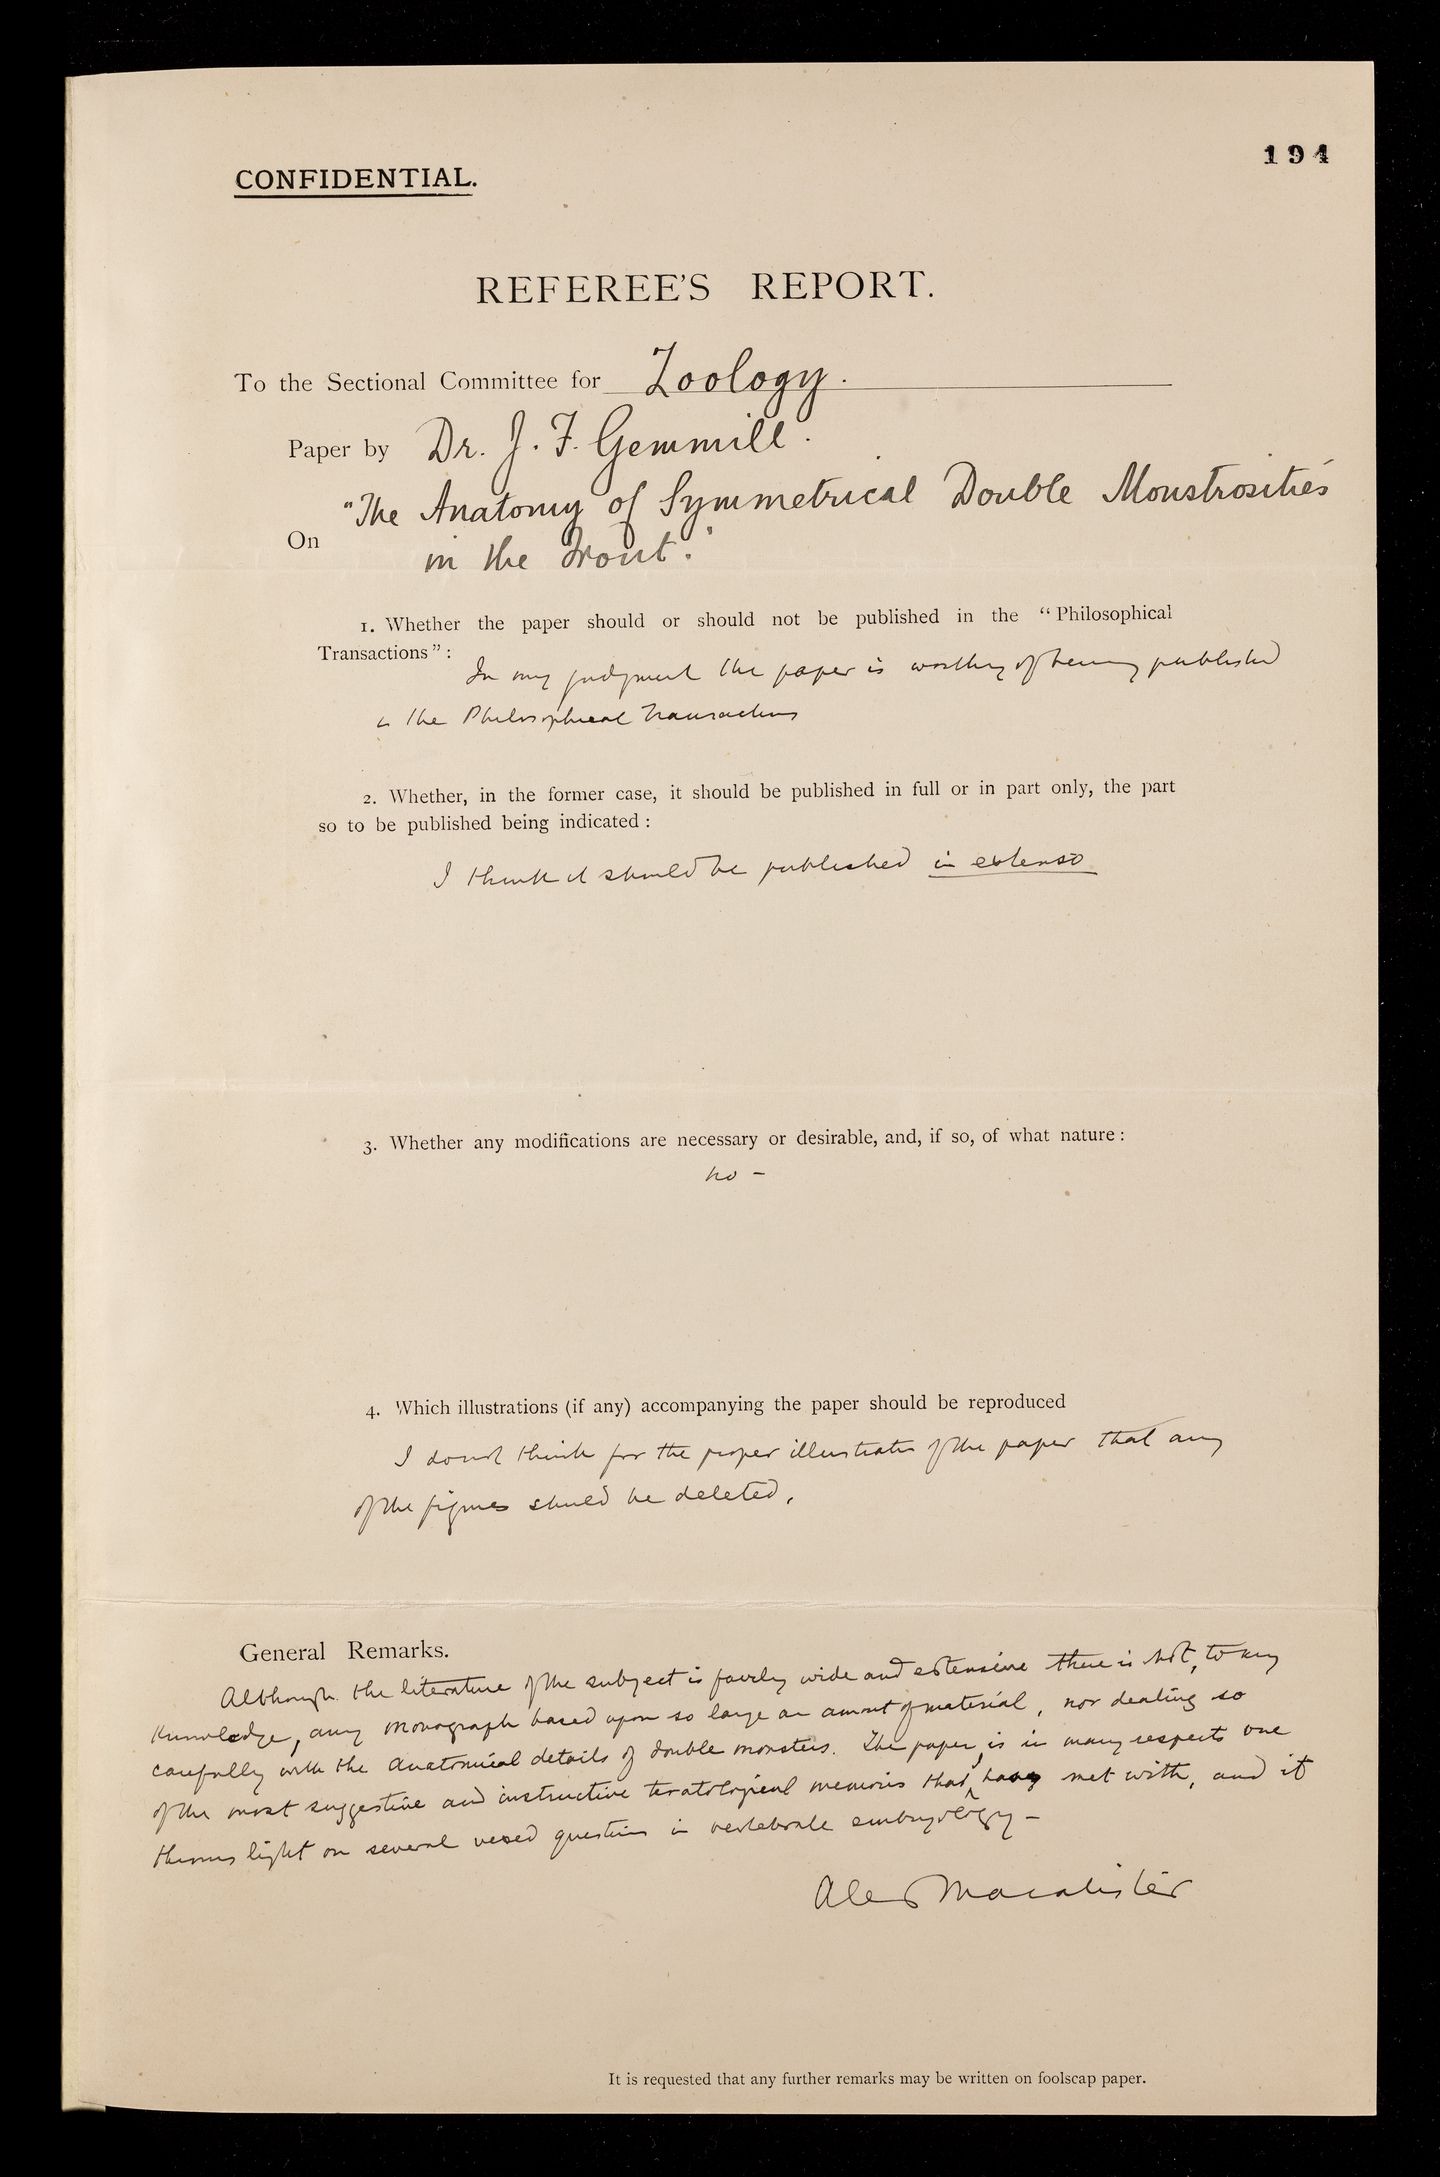 194
CONFIDENTIAL.
REFEREE'S REPORT.
To the Sectional Committee for Zoology.
Paper by Dr. J. F. Gemmill.
"The Anatomy of Symmetrical Double Monstrosities
On
in the Trout."
1. Whether the paper should or should not be published in the "Philosophical
Transactions":
In my judgment the paper is worthy of being published
in the Philosophical Transactions
2. Whether, in the former case, it should be published in full or in part only, the part
so to be published being indicated:
I think it should be published in extenso
3. Whether any modifications are necessary or desirable, and, if so, of what nature:
no -
4. Which illustrations (if any) accompanying the paper should be reproduced
I do not think for the proper illustration of the paper that any
of the figures should be deleted.
General Remarks.
Although the literature of the subject is fairly wide and extensive there is not, to my
knowledge, any monograph based upon so large an amount of material, nor dealing so
carefully with the anatomical details of double monsters. The paper, is in many respects one
of the most suggestive and instructive teratological memoirs that have met with, and it
throws light on several vexed questions in vertebrate embryology -
Alex Macalister
It is requested that any further remarks may be written on foolscap paper.